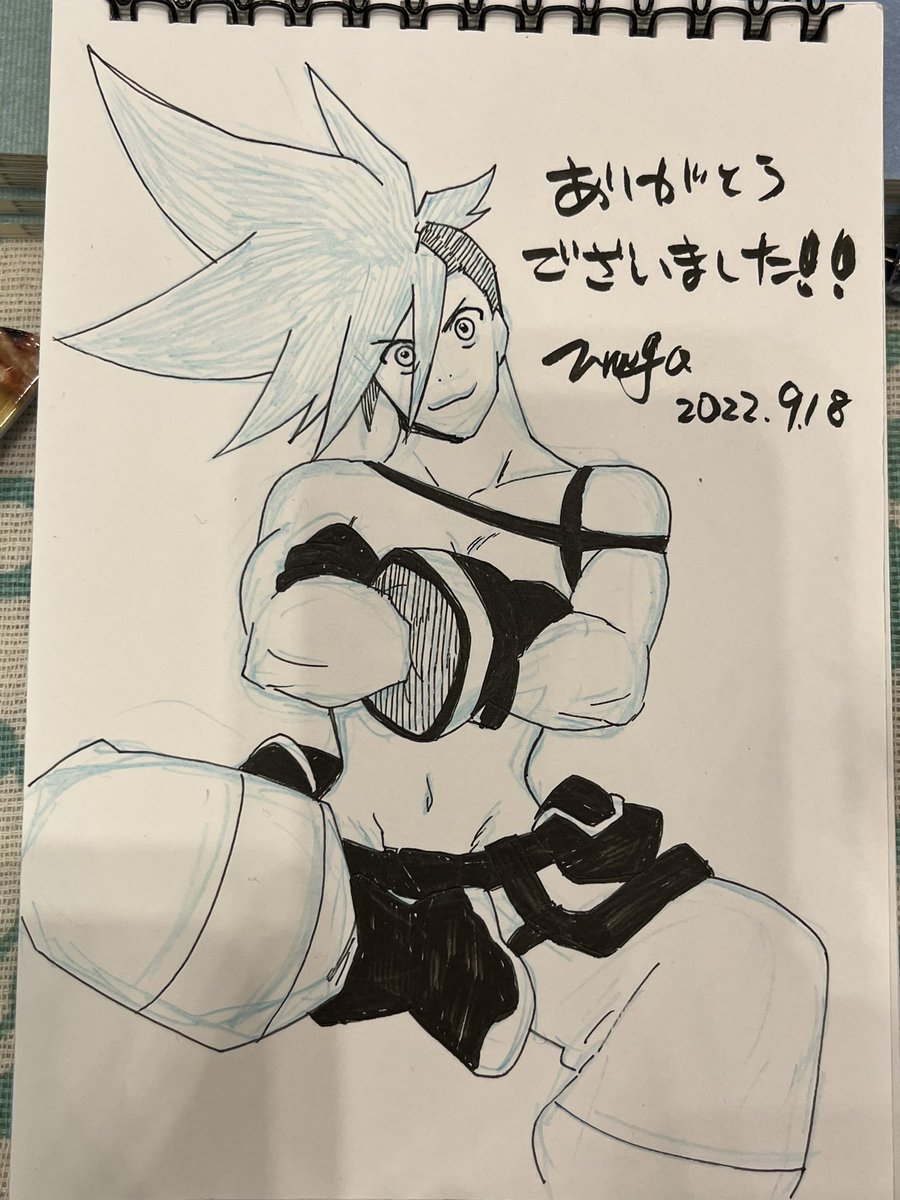 ありがとう
ございました!!
2022.9.18